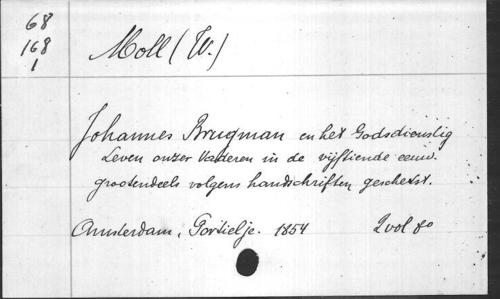 68
168
1
Moll (W.)
Johannes Brugman en het Godsdienstig
Leven onzer Vaderen in de vijftiende eeuw.
grootendeels volgens handschriften geschetst.
Amsterdam, Portielje. 1854 2 vol 8o